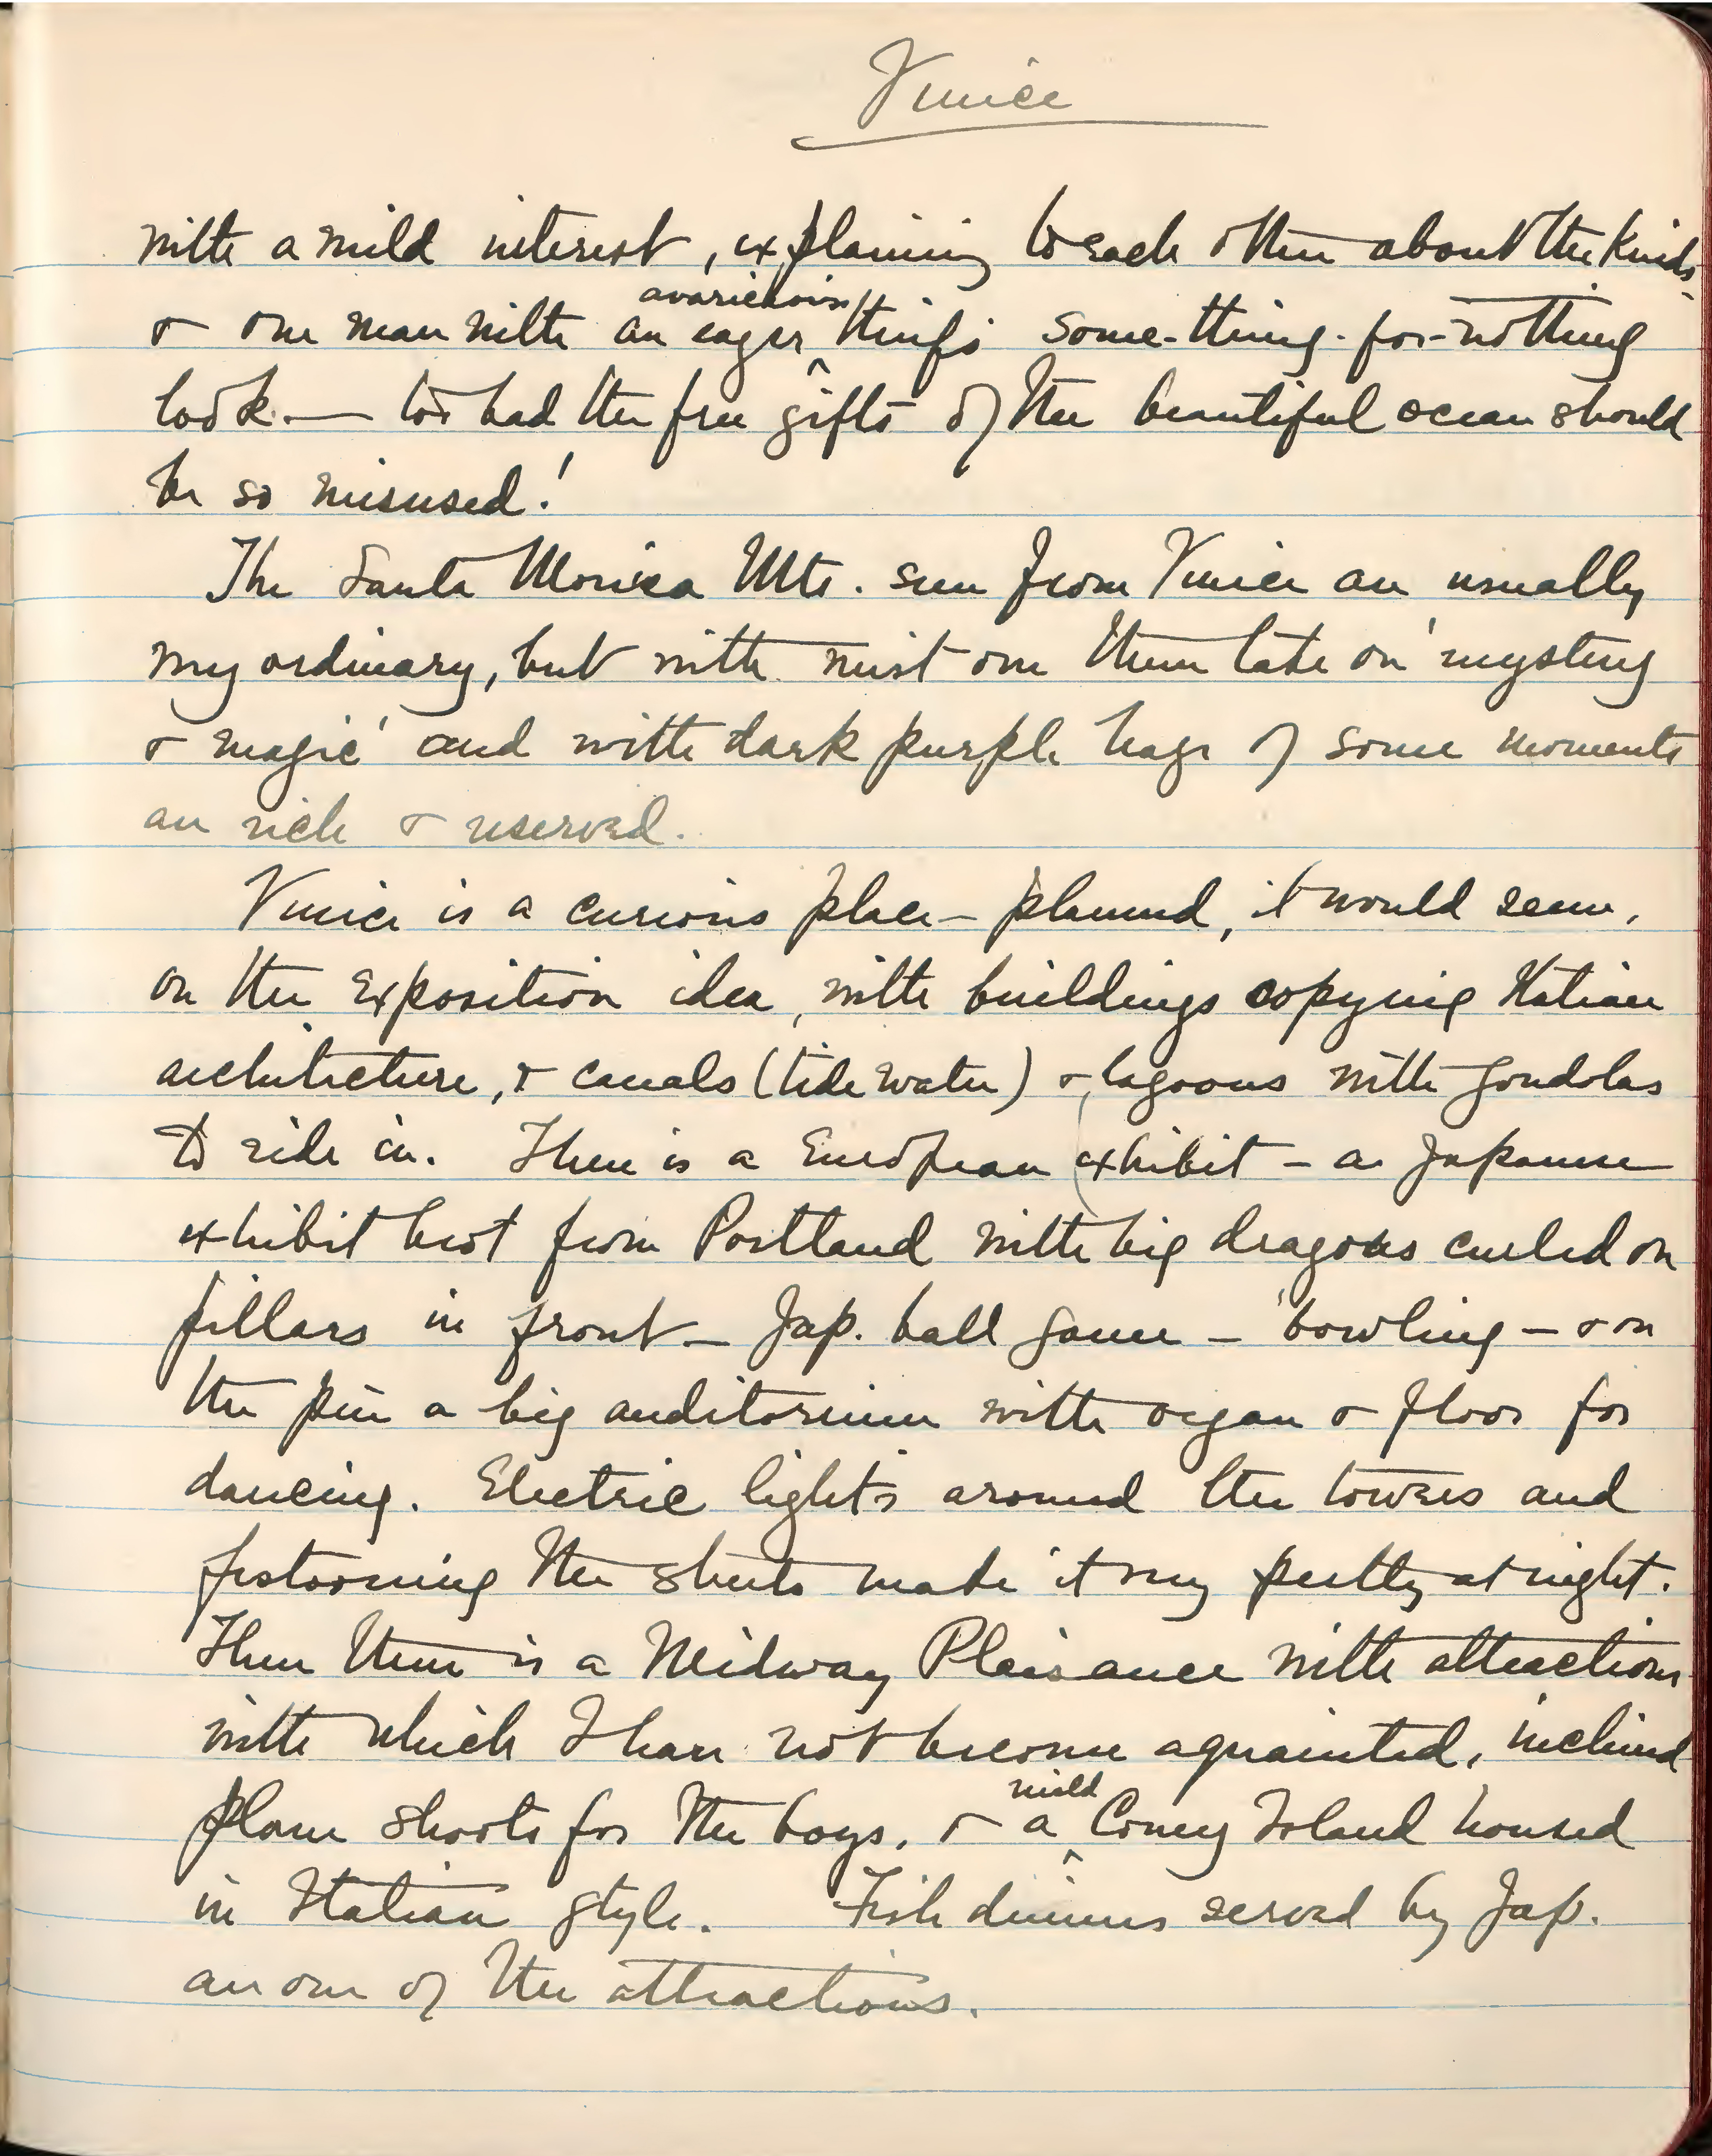 Venice
with a mild interest, explaining to each other about the kinds
avaricious
& one man with an eager ^ thing's some-thing-for-nothing
look — too bad the free gifts of the beautiful ocean should
be so misused!
The Santa Monica Mts. seen from Venice are usually
very ordinary, but with mist over them take on mystery
& magic and with dark purple haze of some moments
are rich & reserved.
Venice is a curious place – planned, it would seem,
on the Exposition idea, with buildings copying Italian
architecture, & canals (tide water) & lagoons with gondolas
to ride in. There is a European exhibit – a Japanese
exhibit bro't from Portland with big dragons curled on
pillars in front – Jap. ball game – bowling – & on
the pier a big auditorium with organ & floor for
dancing. Electric lights around the towers and
festooning the streets made it very pretty at night.
Then there is a Midway Plaisance with attractions
with which I have not become aquainted, inclined
mild
plane shoots for the boys, & a ^ Coney Island housed
in Italian style. Fish dinners served by Jap.
are one of the attractions.